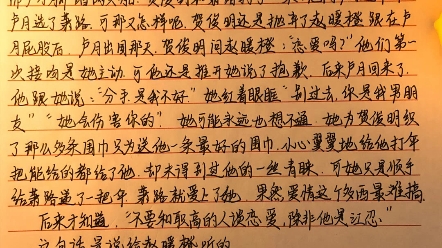 卢月选了萧路，可那又怎样呢，贺俊明还是抛弃了赵暖橙，跟在卢
月屁股后，卢月出国那天，贺俊明问赵暖橙：“恋爱吗？”他们第一
次接吻是她主动，可他还是推开她说了抱歉，后来卢月回来了，
他跟她说：“分手，是我不好”她红着眼眶“别过去，你是我男朋
友”“她会伤害你的”她可能永远也想不通，她为贺俊明织
了那么多条围巾只为送他一条最好的围巾，小心翼翼地给他打伞
把能给的都给了他，却未得到过他的一丝青睐，可她只是顺手
给萧路递了一把伞，萧路就爱上了她，果然爱情这个东西最难搞，
后来才知道，“不要和取高的人谈恋爱，除非他是江忍。”
这句话是说给赵暖橙听的